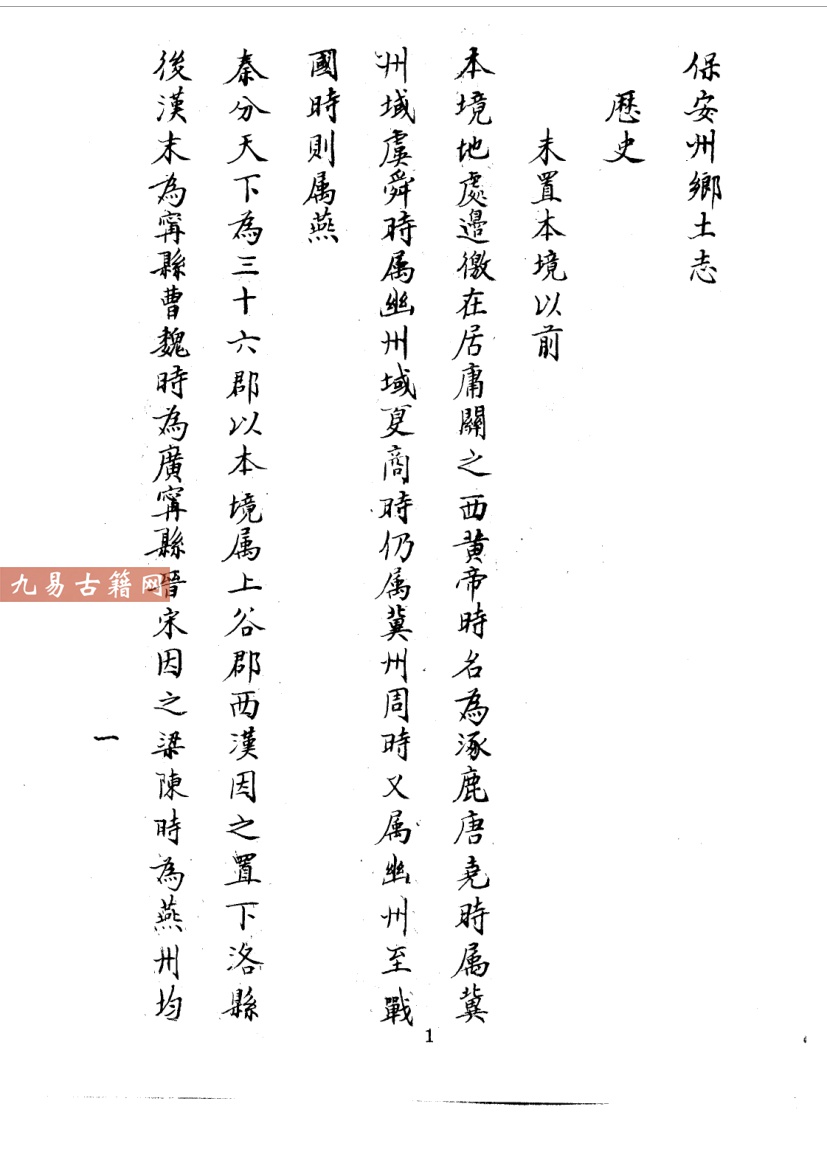 保安州鄉土志
歷史
未置本境以前
本境地處邉徼在居庸關之西黄帝時名為涿鹿唐堯時属冀
州域虞舜時属幽州域夏商時仍属冀州周時又属幽州至戰
國時則属燕
秦分天下為三十六郡以本境属上谷郡西漢因之置下洛縣
後漢末為寗縣曹魏時為廣寗縣晉宋因之梁陳時為燕州均
一
九易古籍网
1